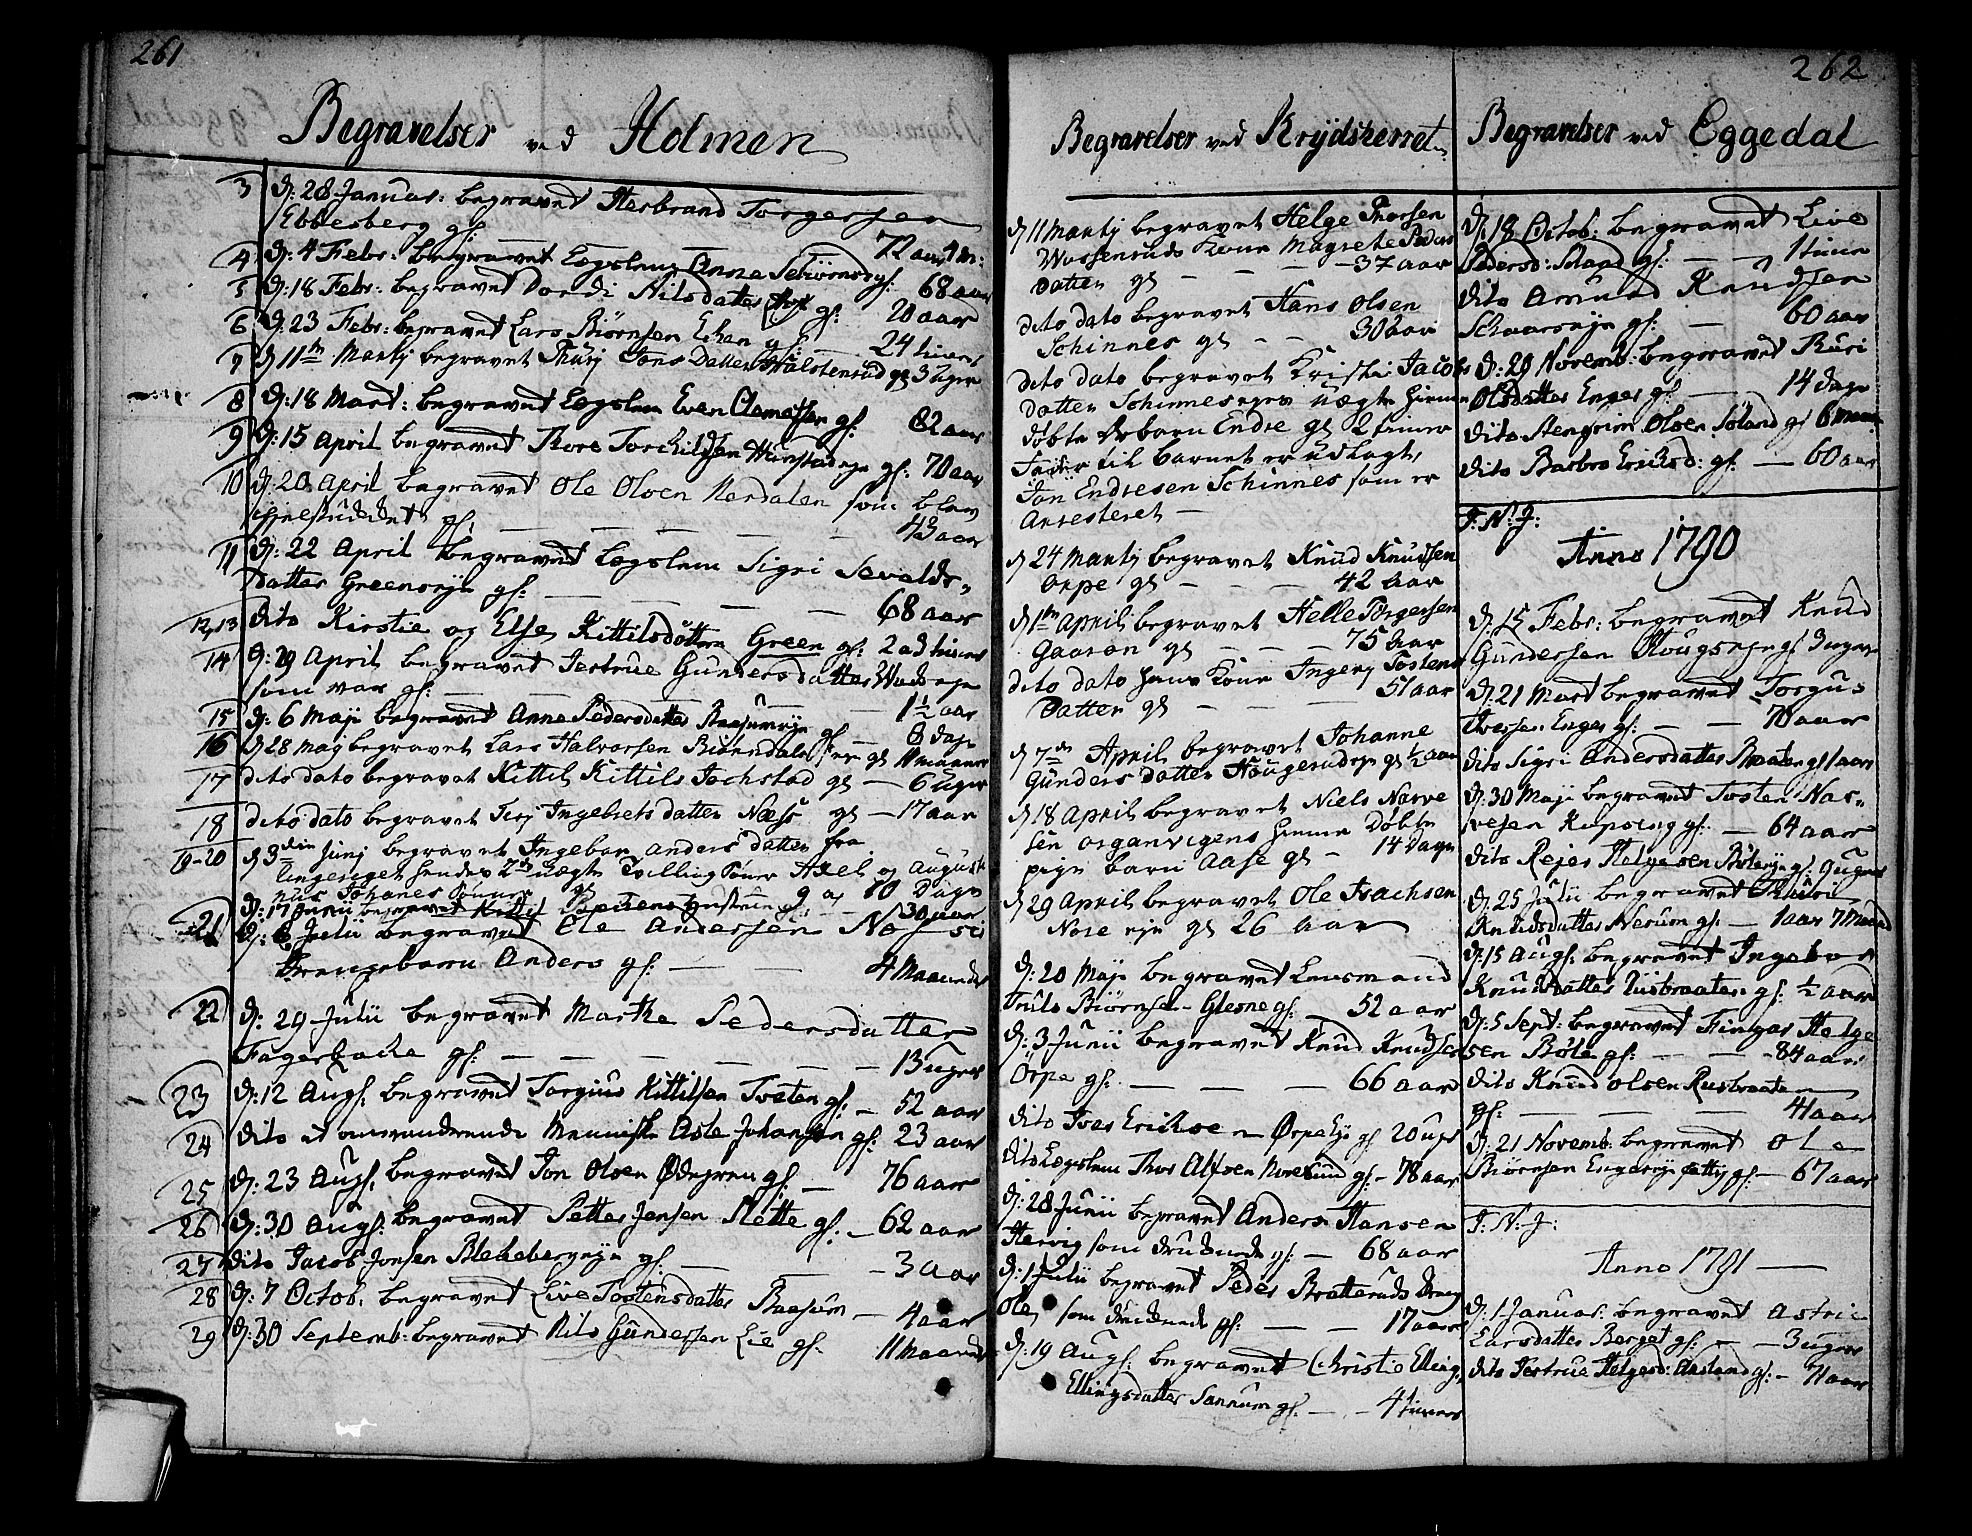 261
Begravelser ved Holmen
3 d: 28 Januar: begravet Herbrand Torgersen
Ebbesberg gl: 72 aar 4 m:
4 d: 4 Febr: begravet Lægslem Anna Sebiørnsd gl: 68 aar
5 d: 18 Febr: begravet Dordi Nilsdatter gl: 20 aar
6 d: 23 Febr: begravet Lars Biørnsen Ekern gl: 24 timer
7 d 11te Martj begravet Thurj Jons Datter gl 3 Uger
8 d: 18 Mart: begravet Lægslem Even Clemetsen gl: 82 aar
9 d: 15 April begravet Tore Torchildsen gl: 70 aar
10 d: 20 April begravet Ole Olsen Nordalen som blev
ihjelskuddet gl: 43 aar
11 d: 22 April begravet Lægslem Sigri Sevalds-
datter Greenseje gl: 68 aar
12,13 dito Kirstie og Else Kittilsdøttre Green gl: 2 a 3 timer
14 d: 29 April begravet Jertrue Gundersdatter
som var gl: 1½ aar
15 d: 6 Maji begravet Anne Pedersdatter gl: 8 dage
16 d 28 Maj begravet Lars Halvorsen Biørndalen gl 11 maaner
17 dito dato begravet Kittil Kittils Jochstad gl 6 Uger
18 dito dato begravet Terj Ingebrets datter Næss gl 17 aar
19-20 d 3die Junj begravet Ingebor anders datter fra
hendes 2de uægte Tvilling Sønner Axel og August
Johanes Sønner gl 9 og 10 Dage
d: 17 Junii begravet Kittil gl: 30 aar
21 d: 8 Julii begravet Ole Andersen Næss
Drengebarn Anders gl: 4 Maaneder
22 d: 29 Julii begravet Marthe Pedersdatter
Fagerbache gl: 13 uger
23 d: 12 Augs: begravet Torgius Kittilsen Tveten gl: 52 aar
24 dito et omvandrende Menniske Asle Johansen gl: 23 aar
25 d: 23 Augs: begravet Jon Olsen Ødegren gl: 76 aar
26 d: 30 Augs: begravet Petter Jensen Slette gl: 62 aar
27 dito Jacob Jonsen Blekebergeje gl: 3 aar
28 d: 7 Octob: begravet Live Tostensdatter Baasum 4 aar
29 d: 30 Septemb: begravet Nils Gundersen Lie gl: 11 maaneder
Begravelser ved Krydsherret
d 11 Martj begravet Helge Thorsen
Wassenruds Kone Magrete Peders
datter gl 37 aar
dito dato begravet Hans Olsen
Schinnes gl 30 aar
dito dato begravet Kristi Jacobs
datter Schinnes uægte hieme
døbte Barn Endre gl 2 timer
Fader til barnet er udlagt,
Jon Endresen Schinnes som er
Arresteret
d 24 Martj begravet Knud Knudsen
Ørpe gl 42 aar
d 1te April begravet Helle Torgersen
Gaaron gl 75 aar
dito dato hans Kone Ingerj Tostens
Datter gl 51 aar
d 7de April begravet Johanne
Gunders datter gl ½ aar
d 18 April begravet Niels Narve
sen hieme Døbte
pige barn Aase gl 14 Dage
d 29 April begravet Ole Isachsen
Nore eje gl 26 aar
d: 20 Maji begravet Lensmand
Truls Biørnsen Glesne gl: 52 aar
d: 3 Junii begravet Knud Knudsen
Ørpe gl: 66 aar
dito Iver Eriksen Ørpe eje gl 20 uger
dito Lægslem Thor Alfsen gl: 78 aar
d: 28 Junii begravet Anders Hansen
Hervig som druknede gl: 68 aar
d: 1 Julii begravet Peder Bratteruds dreng
Ole, som druknede gl: 17 aar
d: 19 Augs: begravet Christie Elling
Ellingsdatter Sannum gl: 4 timer
262
Begravelser ved Eggedal
d: 18 Octob: begravet Live
Pedersd: Søland gl: 1 time
dito Amund Knudsen
Schaarseje gl: 60 aar
d: 29 Novemb: begravet Kari
Olsdatter Enger gl: 14 dage
dito Stengrim Olsen Søland gl 6 maan
dito Barbro Eriksd: gl: 60 aar
I: N: J:
Anno 1790
d: 15 Febr: begravet Knud
Gundersen gl 3 uger
d: 21 Mart begravet Torgus
Iversen Enger gl: 70 aar
dito Sigri Andersdatter Braaten gl 1 aar
d: 30 Maji begravet Tosten Nar-
vesen Kopseng gl: 64 aar
dito Rejer Helgesen Bøleeje gl: 9 uger
d: 25 Julii begravet
Knudsdatter Nerum gl: 1 aar 7 Maaned
d: 15 Augs: begravet Ingebor
Knudsdatter Rustbraaten gl: ½ aar
d: 5 Sept: begravet Fingar Helge
sen Bøle gl: 84 aar
dito Knud Olsen Rustbraaten
gl: 41 aar
d: 21 Novemb: begravet Ole
Biørnsen Engereje fattig gl: 67 aar
I: N: J:
Anno 1791
d: 1 Januar: begravet Astrie
Larsdatter Berget gl: 3 uger
dito Jertrue Helgesd: Aasland gl: 71 aar